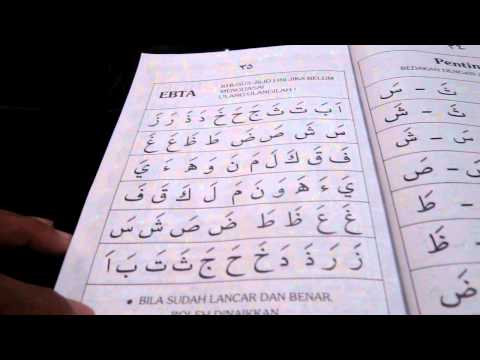 ٣٥
EBTA
KHUSUS JILID I INI, JIKA BELUM
MENGUASAI
ULANG-ULANGILAH !
اَ بَ تَ ثَ جَ حَ خَ دَ ذَ رَ زَ
سَ شَ صَ ضَ طَ ظَ عَ غَ
فَ قَ كَ لَ مَ نَ وَ هَ ءَ يَ
يَ ءَ هَ وَ نَ مَ لَ كَ قَ فَ
غَ عَ ظَ طَ ضَ صَ شَ سَ
زَ رَ ذَ دَ خَ حَ جَ ثَ تَ بَ اَ
• BILA SUDAH LANCAR DAN BENAR,
BOLEH DINAIKKAN
٣٤
Pentin
BEDAKAN
ثَ – سَ
ثَ – شَ
سَ – شَ
– صَ
– طَ
– ظَ
ضَ